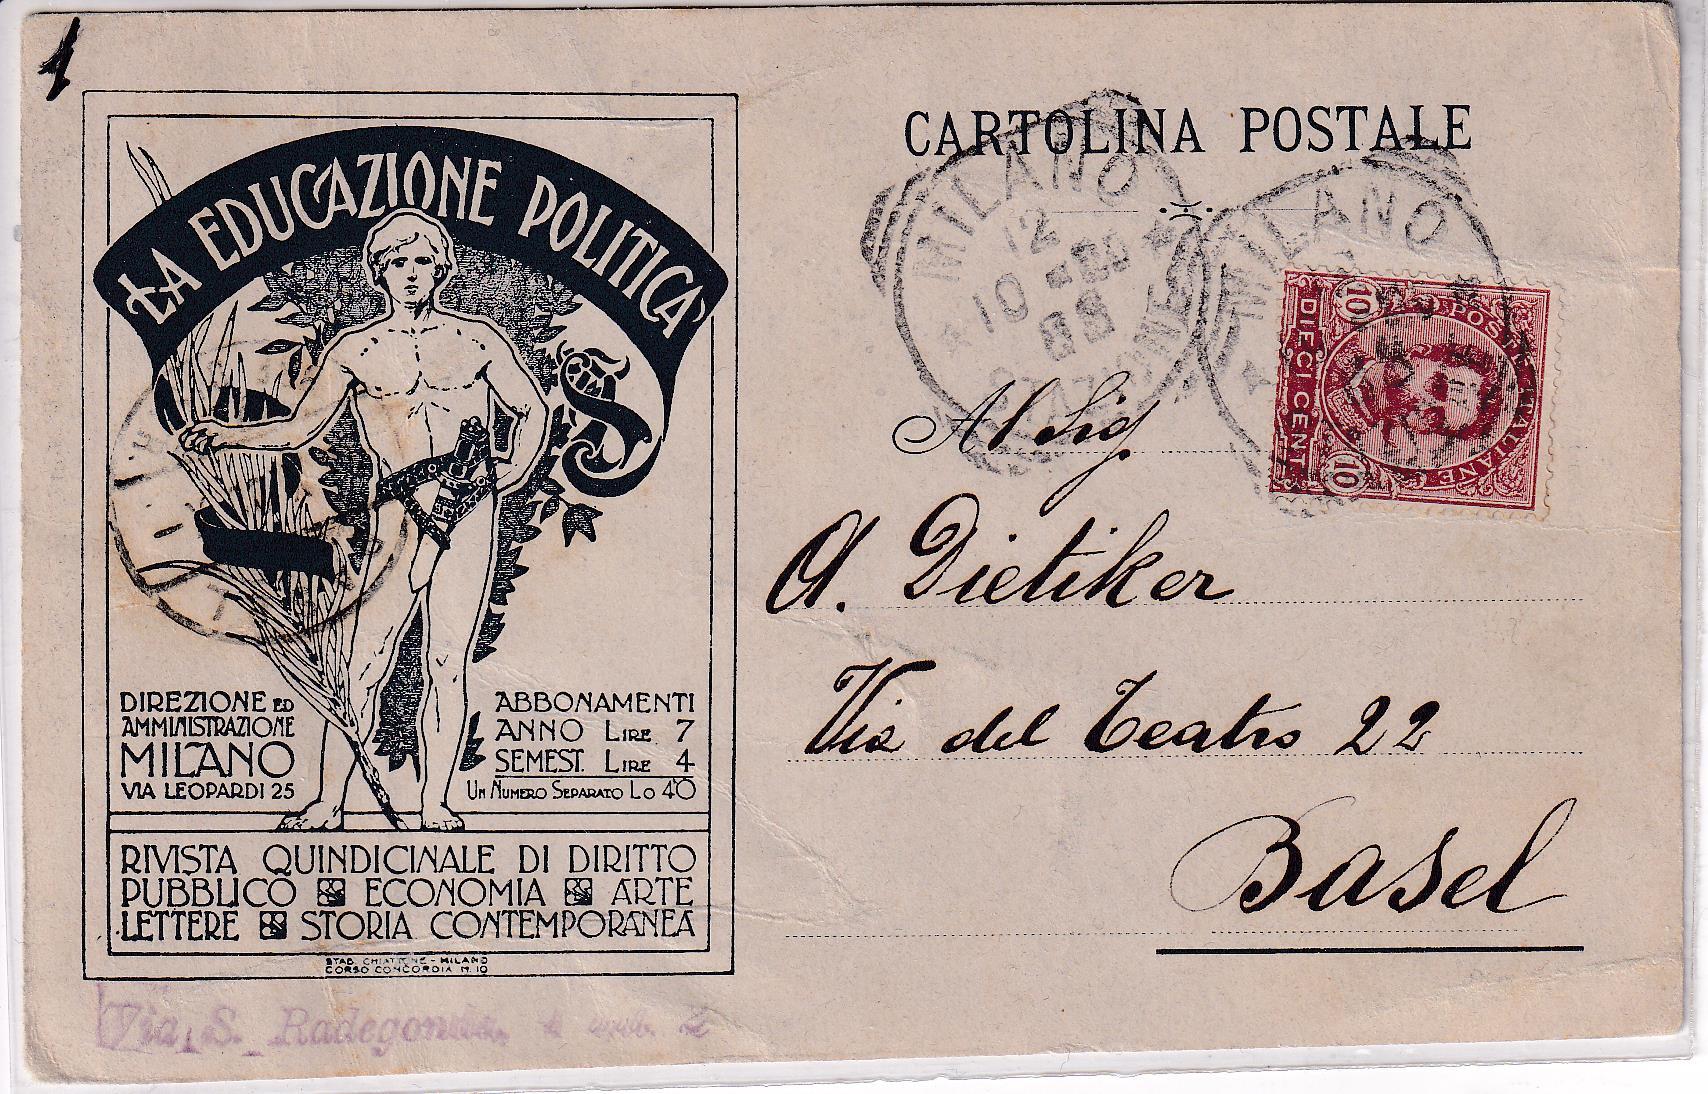 1
LA EDUCAZIONE POLITICA
DIREZIONE ED
AMMINISTRAZIONE
MILANO
VIA LEOPARDI 25
ABBONAMENTI
ANNO LIRE 7
SEMEST. LIRE 4
UN NUMERO SEPARATO Lo 40
RIVISTA QUINDICINALE DI DIRITTO
PUBBLICO ECONOMIA ARTE
LETTERE STORIA CONTEMPORANEA
STAB. CHIATTONE - MILANO
CORSO CONCORDIA N. 10
Via S. Radegonda,
CARTOLINA POSTALE
MILANO
12
10
STAZIONE
MILANO
POSTE ITALIANE
10 DIECI CENT. 10
Al Sig
A. Dietiker
Via del Teatro 22
Basel